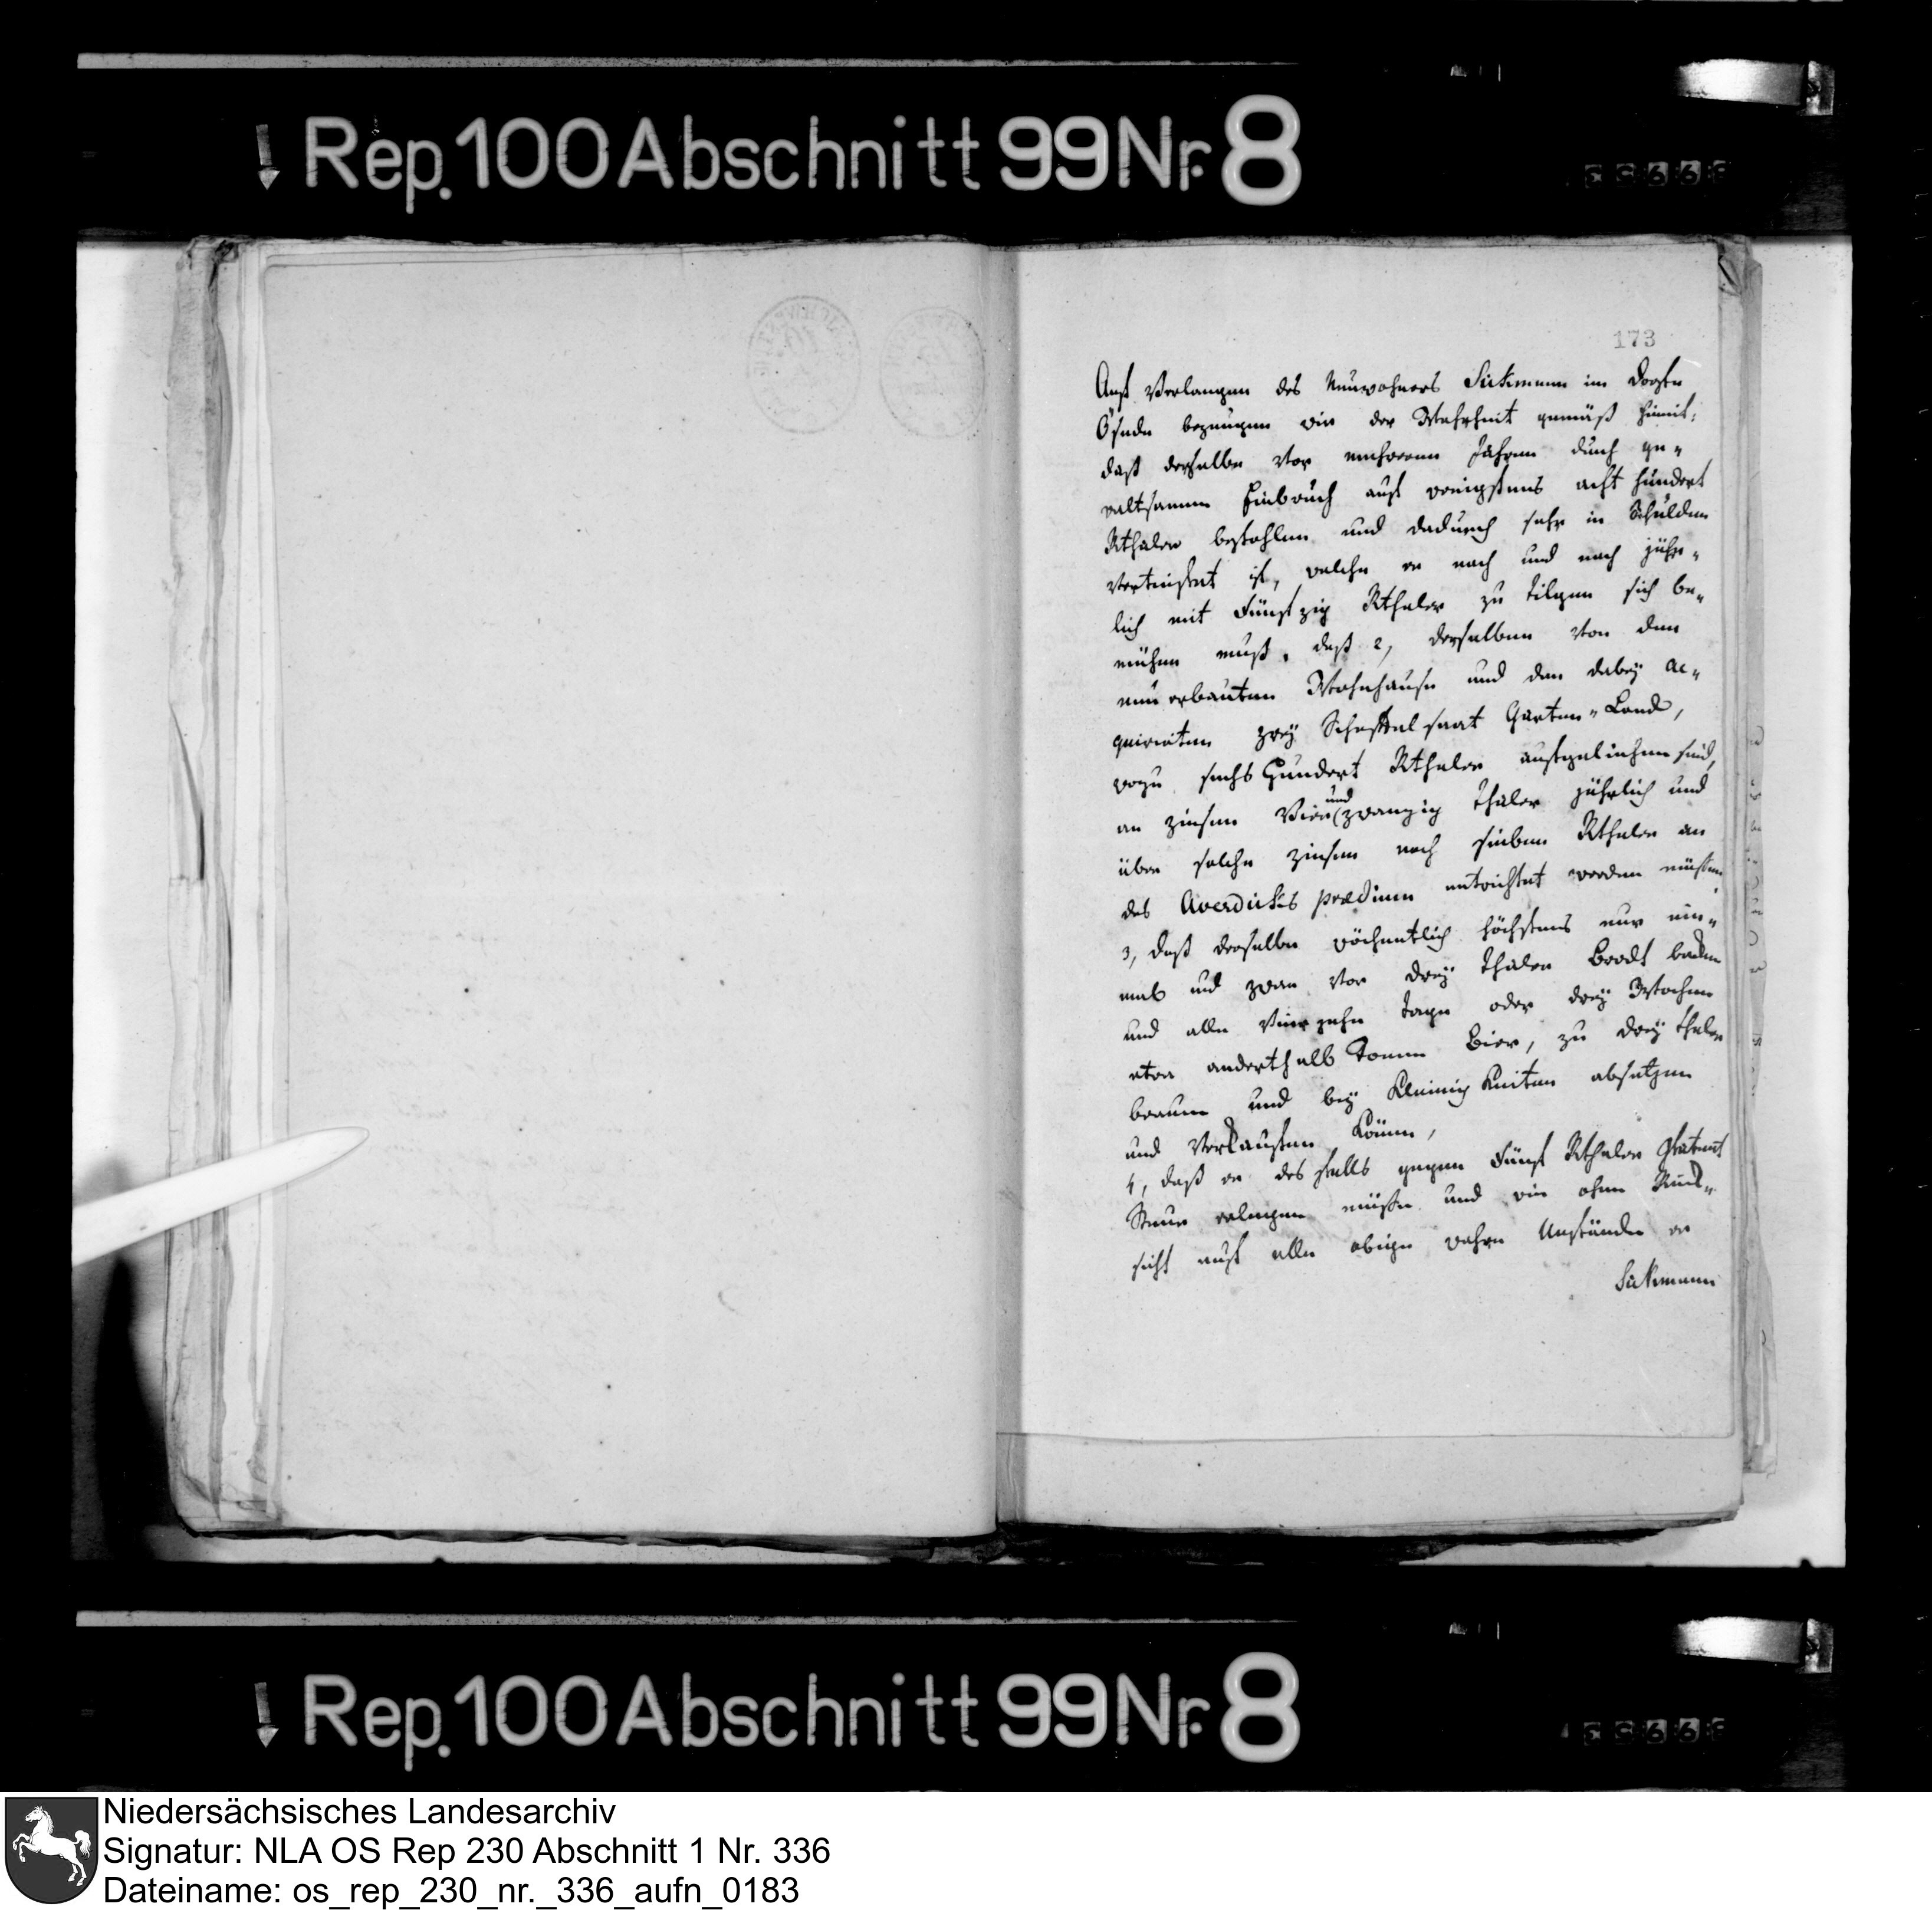 ↓ Rep. 100 Abschnitt 99 Nr. 8
173
Auf Verlangen des Neuwohners Sickmann im Dorfe
Ösede bezeugen wir der Wahrheit gemäß hiemit:
daß derselbe vor mehreren Jahren durch ge-
waltsamen Einbruch auf wenigstens acht hundert
Rthaler bestohlen und dadurch sehr in Schulden
vertieffet ist, welche er nach und nach jähr-
lich mit Fünfzig Rthaler zu tilgen sich be-
mühen muß, daß 2, derselben von dem
neu erbauten Wohnhause und den dabey ac-
quirirten zwey Scheffel saat Garten-Land,
wozu sechs Hundert Rthaler aufgeliehen sind,
an Zinsen Vier und zwanzig Thaler jährlich und
über solche Zinsen noch sieben Rthaler an
des Averdicks prædium entrichtet werden müssen
3, daß derselbe wöchentlich höchstens nur ein-
mal und zwar vor drey Thaler Brodt backen
und alle Vierzehn Tage oder drey Wochen
etwa anderthalb Tonnen Bier, zu drey Thaler
brauen und bey Kleinigkeiten absetzen
und verkauffen könne,
4, daß er desfalls gegen Fünf Rthaler Patent
Steuer erlegen müsse und wir ohne Rück-
sicht auf alle obige wahre Umstände er
Sickmann
↓ Rep. 100 Abschnitt 99 Nr. 8
Niedersächsisches Landesarchiv
Signatur: NLA OS Rep 230 Abschnitt 1 Nr. 336
Dateiname: os_rep_230_nr._336_aufn_0183